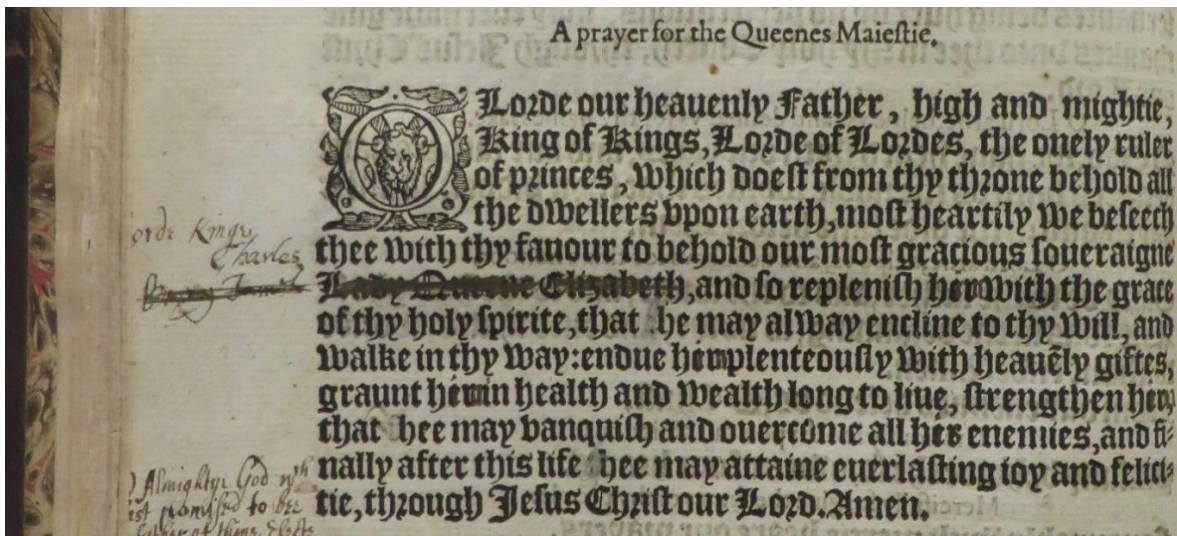 A prayer for the Queenes Maiestie.
O Lorde our heauenly Father, high and mightie,
King of Kings, Lorde of Lordes, the onely ruler
of princes, which doest from thy throne behold all
the dwellers vpon earth, most heartily we beseech
thee with thy fauour to behold our most gracious soueraigne
Lady Queene Elizabeth, and so replenish her with the grace
of thy holy spirite, that he may alway encline to thy will, and
walke in thy way: endue him plenteously with heauẽly giftes,
graunt him in health and wealth long to liue, strengthen him,
that hee may vanquish and ouercome all his enemies, and fi-
nally after this life hee may attaine euerlasting ioy and felici-
tie, through Jesus Christ our Lord. Amen.
orde Kinge
Charles
James
Almightye God wch
promised to bee
father of thine Elect